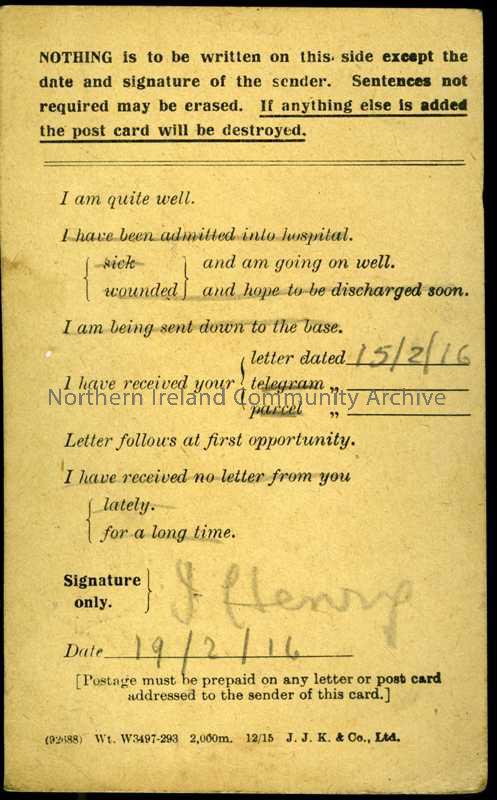 NOTHING is to be written on this side except the
date and signature of the sender. Sentences not
required may be erased. If anything else is added
the post card will be destroyed.
I am quite well.
I have been admitted into hospital.
sick } and am going on well.
wounded } and hope to be discharged soon.
I am being sent down to the base.
letter dated 15/2/16
I have received your { telegram „
Northern Ireland Community Archive
parcel „
Letter follows at first opportunity.
I have received no letter from you
lately.
for a long time.
Signature
only. } J Henry
Date 19/2/16
[Postage must be prepaid on any letter or post card
addressed to the sender of this card.]
(92688) Wt. W3497-293 2,000m. 12/15 J. J. K. & Co., Ltd.